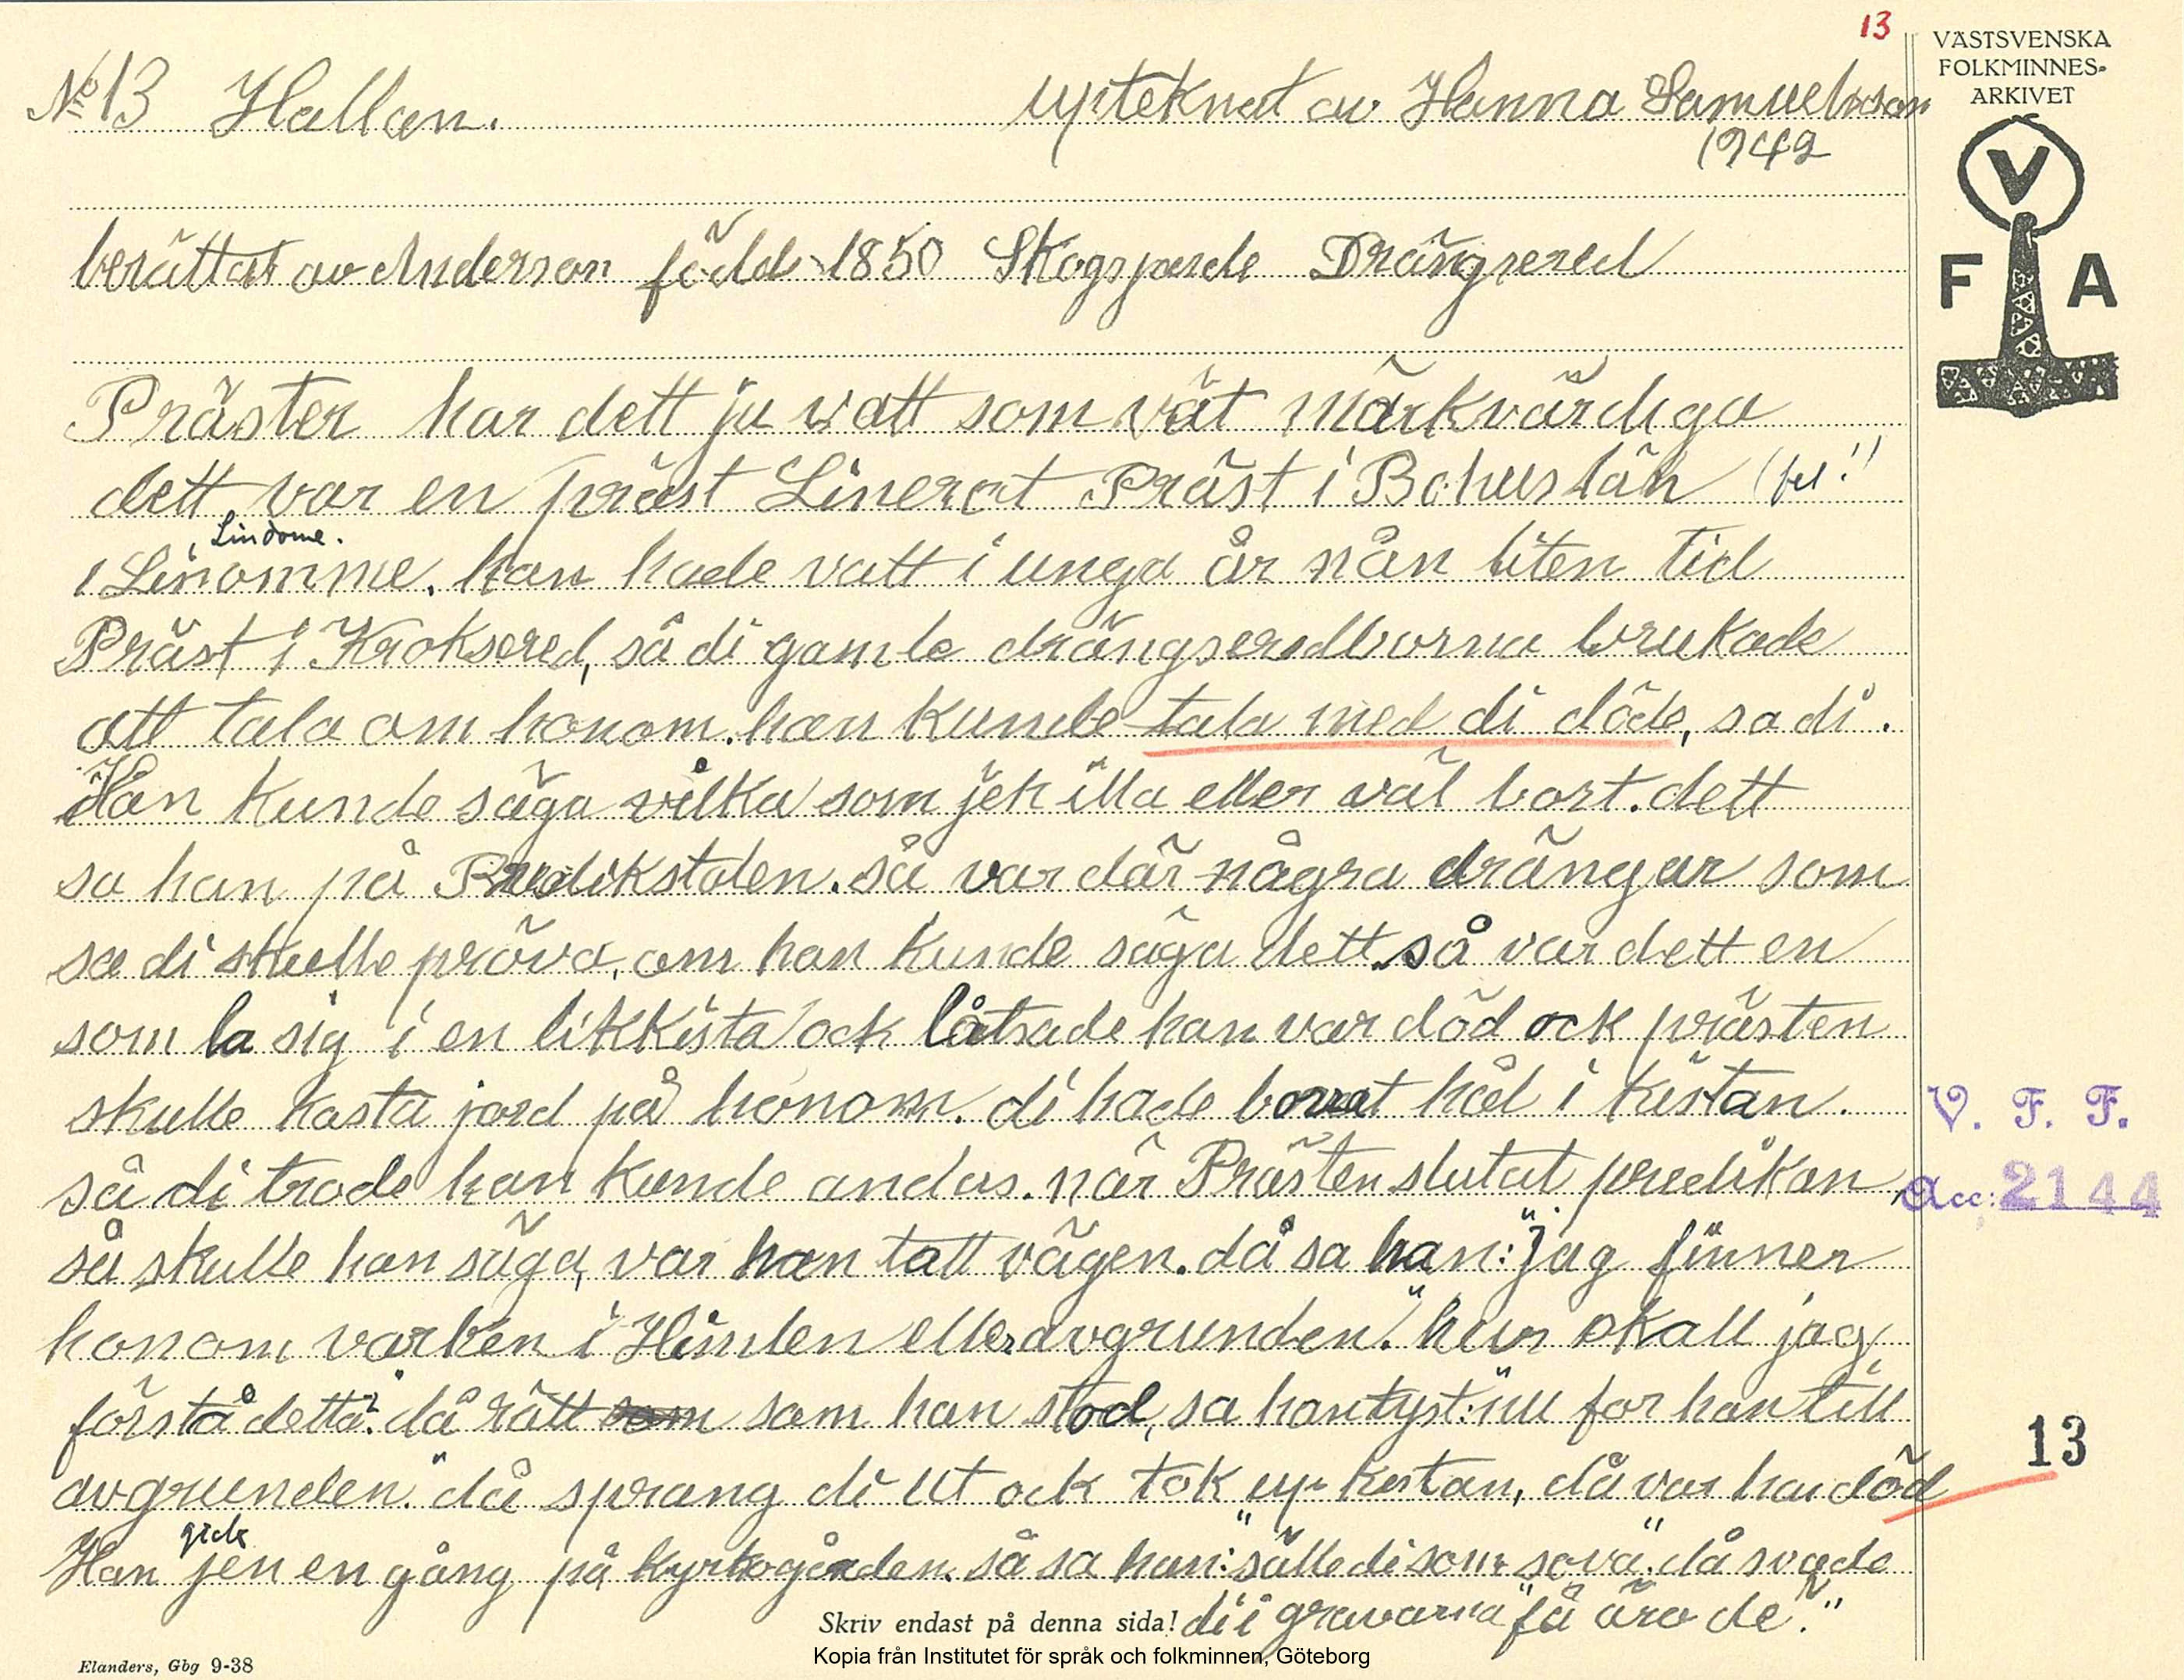 13
VÄSTSVENSKA
FOLKMINNES-
ARKIVET
No 13 Hallan. upteknat av Hanna Samuelsson
1942
V
F A
berättat av Anderson född 1850 Drängsered
Präster har dett ju vatt som vät märkvärdiga
dett var en präst Linerot Präst i Bohuslän (fel!)
Lindome.
i Linomme. han hade vatt i unga år nån liten tid
Präst i Kroksered, så di gamle drängseredborna brukade
att tala om honom. han kunde tala med di döde, sa di.
Han kunde säga vilka som jek illa eller väl bort. dett
sa han på Predikstolen. så var där några drängar som
sa di skulle pröva, om han kunde säga dett. så var dett en
som la sig i en likkista ock låtsade han var död ock prästen
skulle kasta jord på honom. di hade borrat hål i kistan.
så di trode han kunde andas. när Prästen slutat predikan,
så skulle han säga, var han tatt vägen. då sa han: "jag finner
honom varken i Himlen eller avgrunden." hur skall jag
förstå detta? då rätt som som han stod, sa han tyst: "nu for han till
avgrunden." då sprang di ut ock tok up kistan, då var han död
gick
Han jen en gång på kyrkogården. så sa han: "sälle di som sova". då svade
di i gravarna "få äro de."
V. F. F.
Acc: 2144
13
Skriv endast på denna sida!
Kopia från Institutet för språk och folkminnen, Göteborg
Elanders, Gbg 9-38